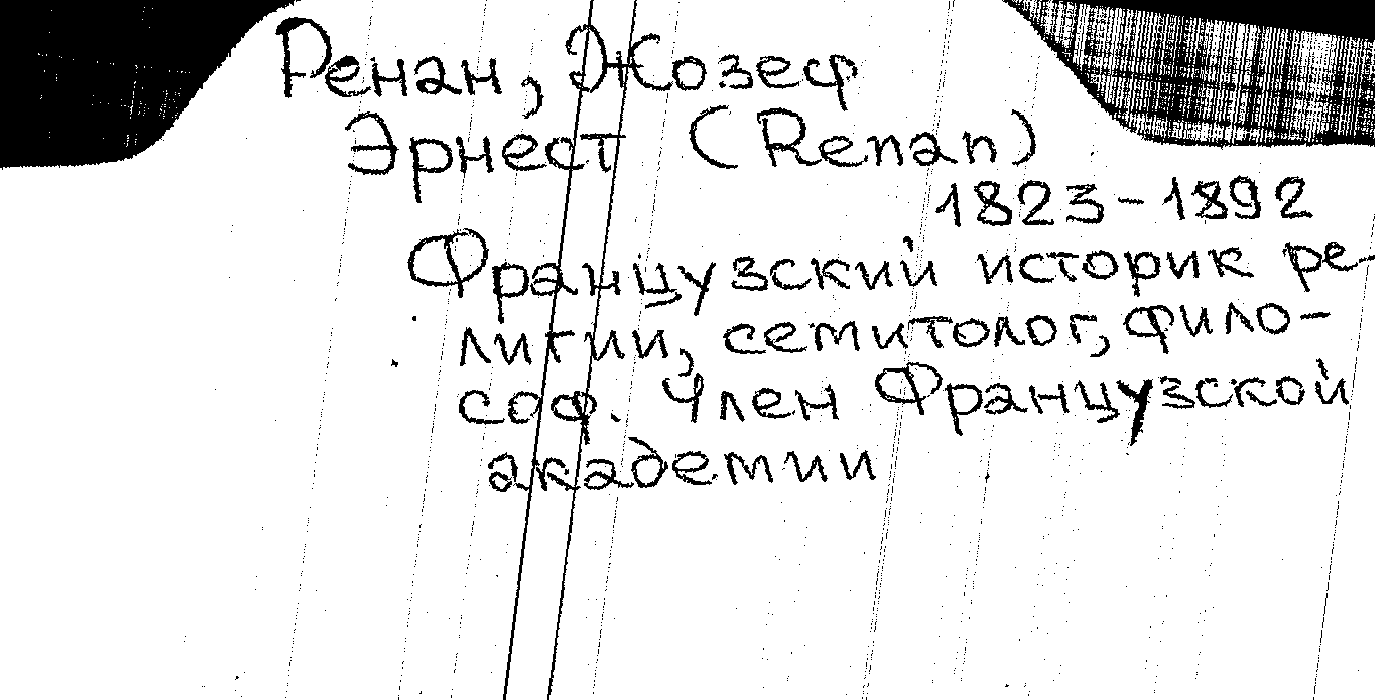 Ренан, Жозеф
Эрнест (Renan)
1823-1892
Французский историк ре-
лигии, семитолог, фило-
соф. Член Французской
академии